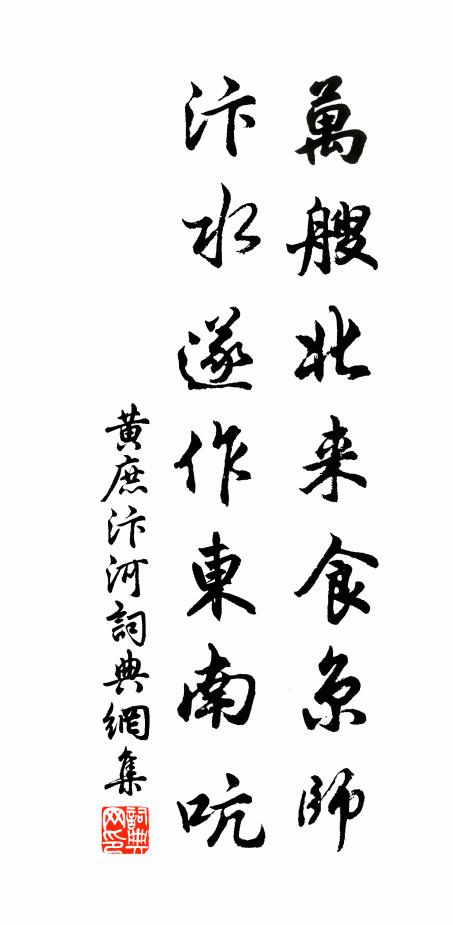 萬艘北来食京師
汴水遂作東南吭
黄庶汴河詞典網集
詞典網印